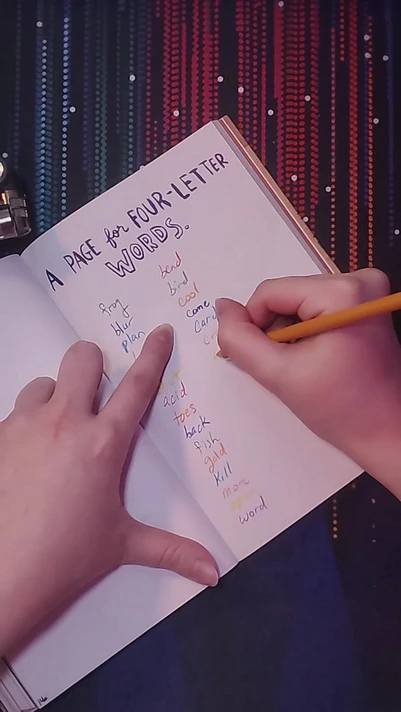 A PAGE for FOUR-LETTER
WORDS.
frog
blur
plan
bend
bird
cool
come
acid
toes
back
fish
gold
kill
word